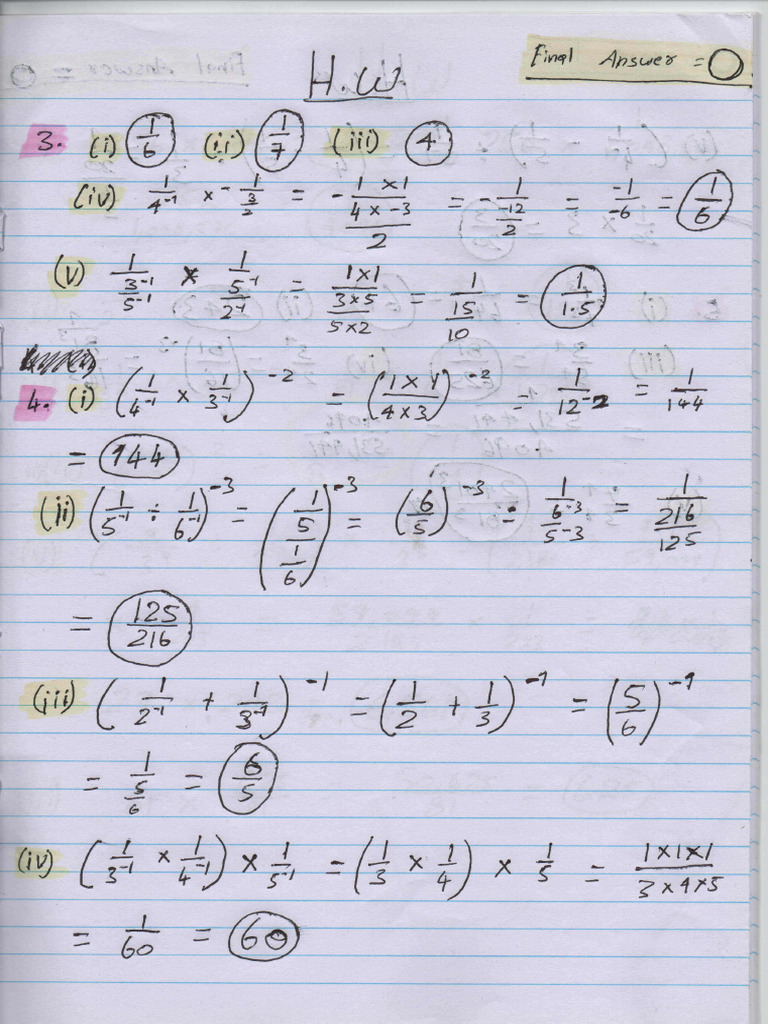 Final Answer = O
H.W
3. (i) 1/6 (ii) 1/7 (iii) 4
(iv) 1/4⁻¹ × -1/(3/2) = -(1×1)/((4×-3)/2) = -1/(-12/2) = -1/-6 = 1/6
(v) 1/(3⁻¹/5⁻¹) × 1/(5⁻¹/2⁻¹) = (1×1)/((3×5)/(5×2)) = 1/(15/10) = 1/1.5
4. (i) (1/4⁻¹ × 1/3⁻¹)⁻² = ((1×1)/(4×3))⁻² = 1/12⁻² = 1/144
= 144
(ii) (1/5⁻¹ ÷ 1/6⁻¹)⁻³ = ((1/5)/(1/6))⁻³ = (6/5)⁻³ = 1/(6⁻³/5⁻³) = 1/(216/125)
= 125/216
(iii) (1/2⁻¹ + 1/3⁻¹)⁻¹ = (1/2 + 1/3)⁻¹ = (5/6)⁻¹
= 1/(5/6) = 6/5
(iv) (1/3⁻¹ × 1/4⁻¹) × 1/5⁻¹ = (1/3 × 1/4) × 1/5 = (1×1×1)/(3×4×5)
= 1/60 = 60